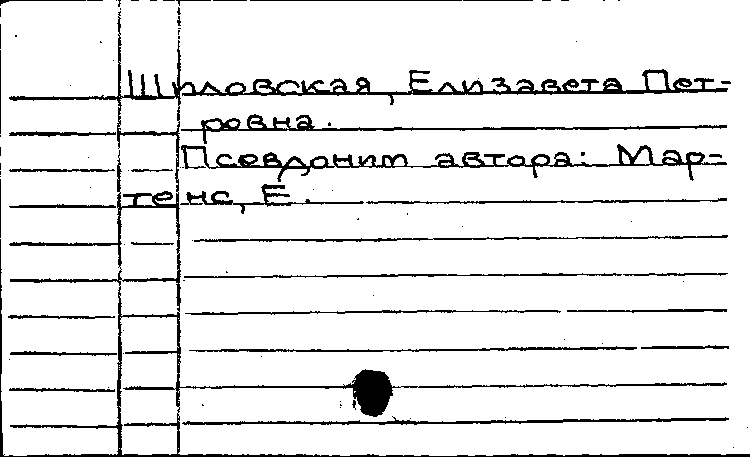 Шиловская, Елизавета Пет-
ровна.
Псевдоним автора: Мар-
тенс, Е.